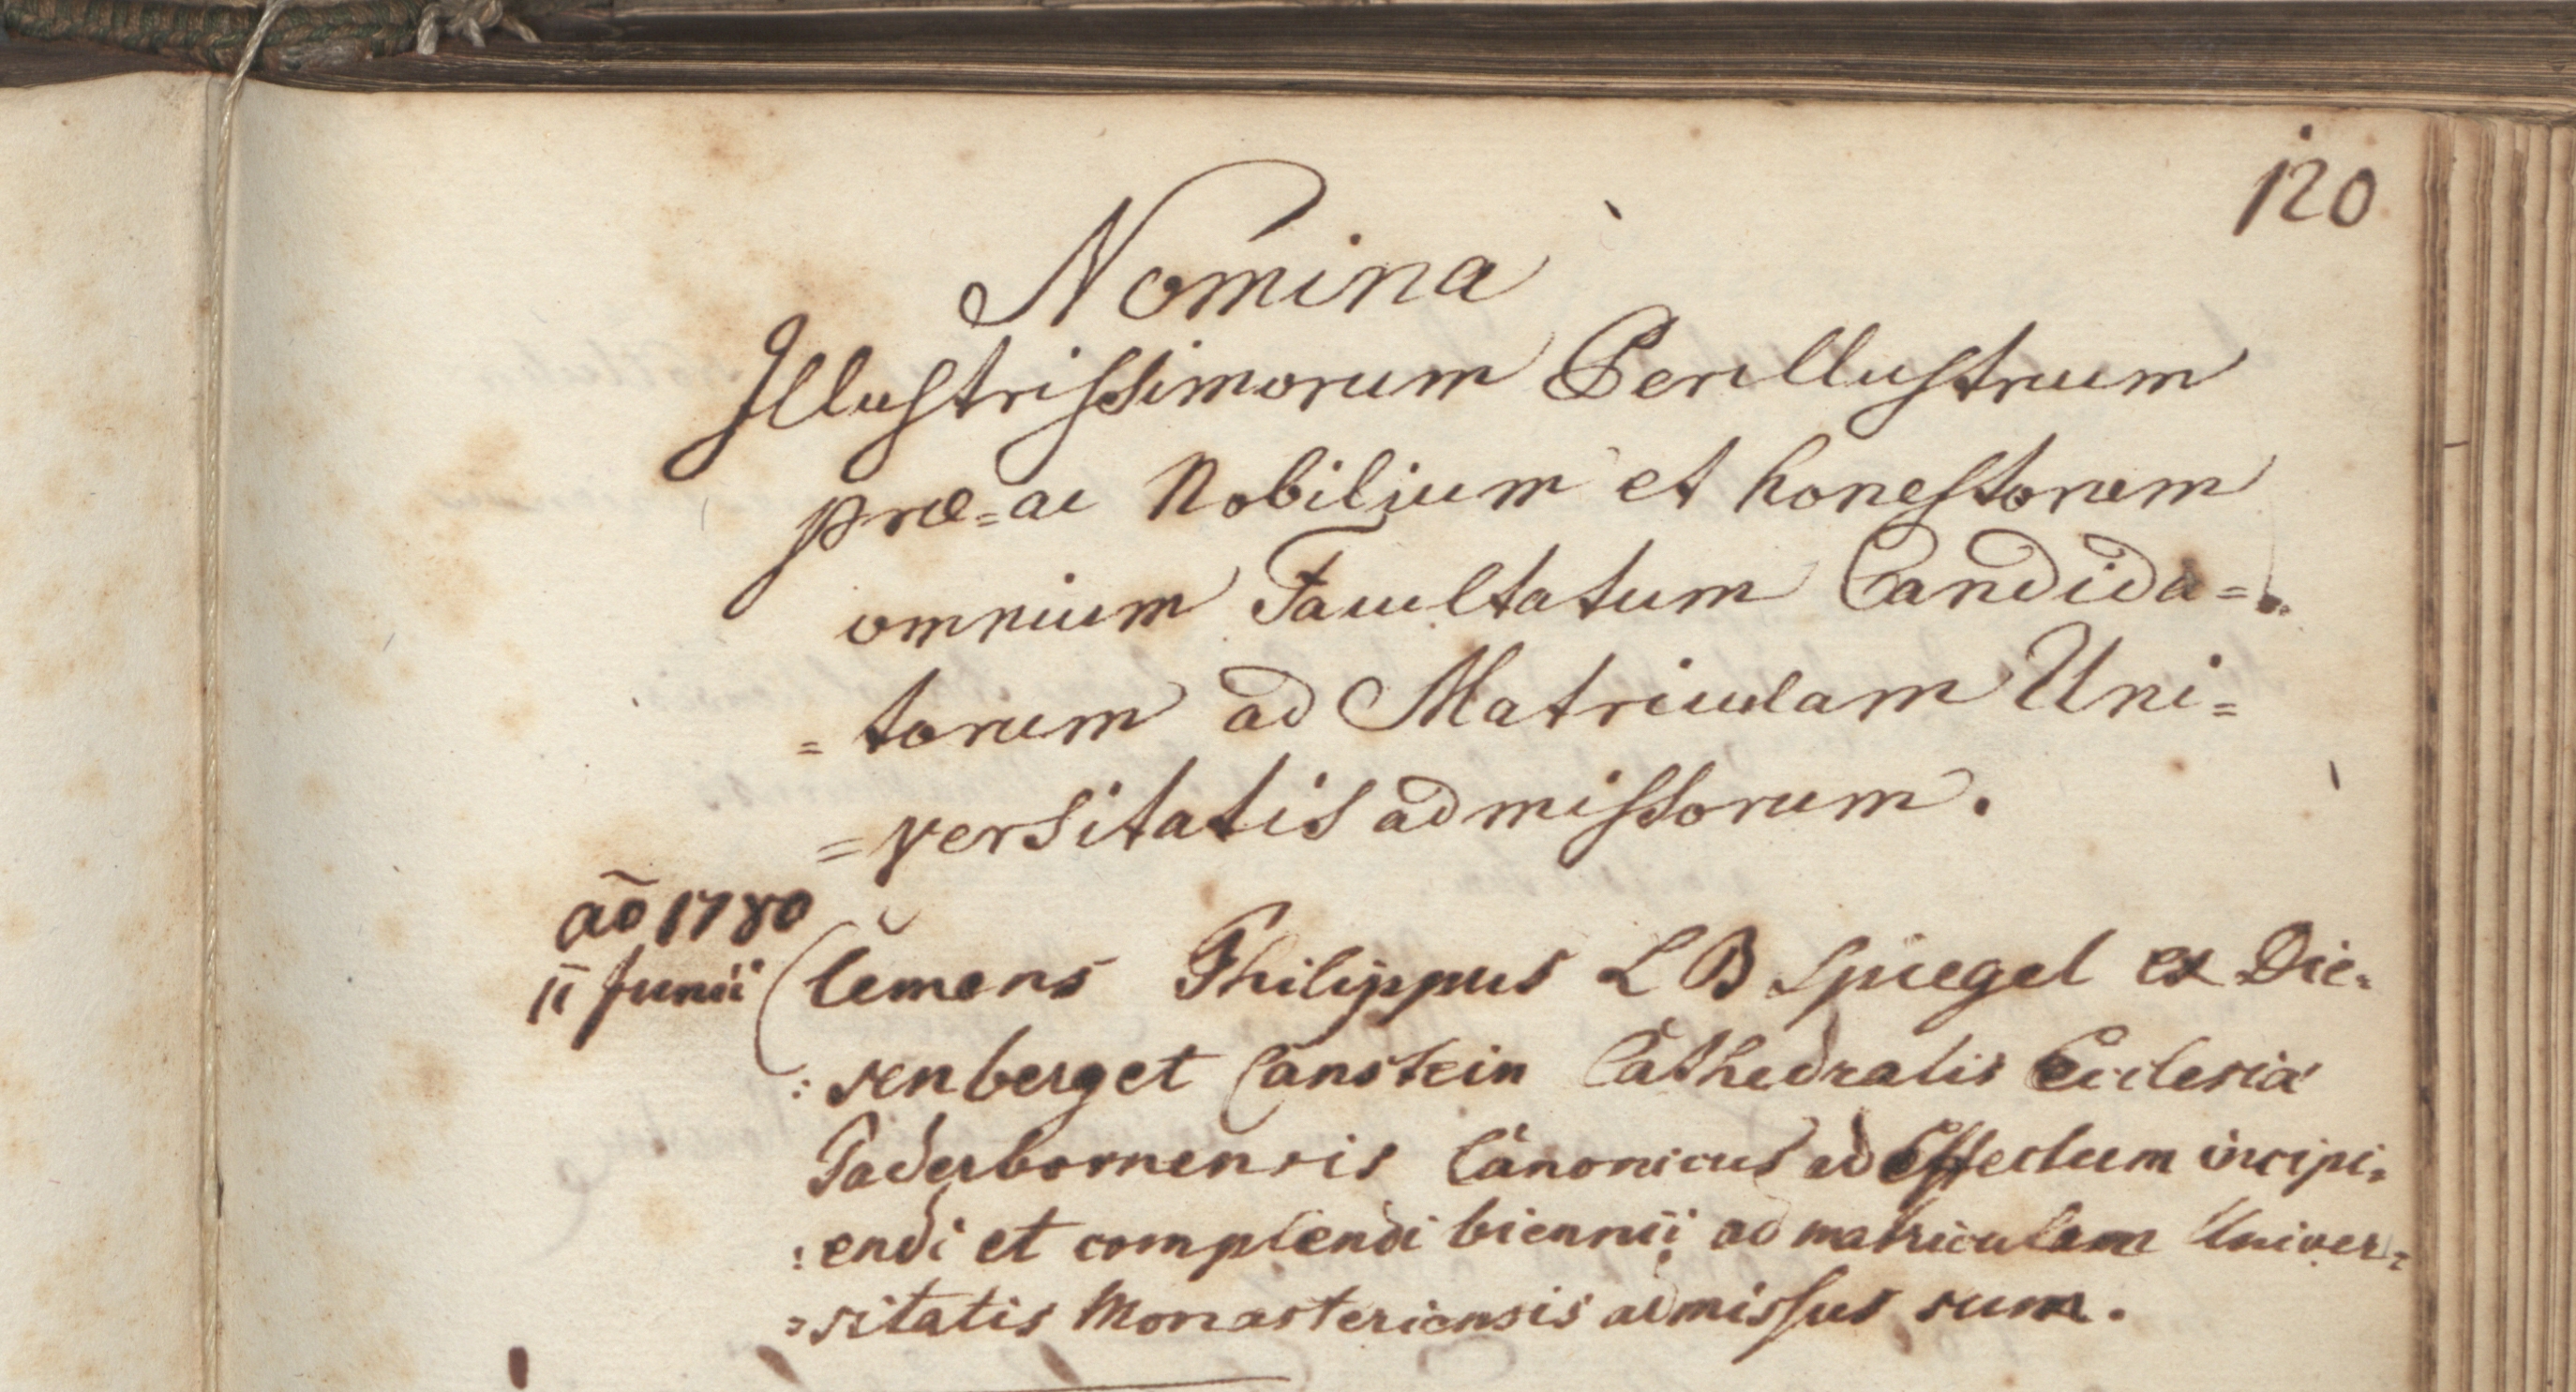 120
Nomina
Illustrissimorum Perillustrium
præ=ac Nobilium et honestorum
omnium Facultatum Candida=
=torum ad Matriculam Uni=
=versitatis admissorum.
aõ 1780
11 Junii Clemens Philippus L B Spiegel ex Die=
:senberg et Canstein Cathedralis Ecclesiæ
Paderbornensis Canonicus ad Effectum incipi=
:endi et complendi biennii ad matriculam Univer=
=sitatis Monasteriensis admissus sum.